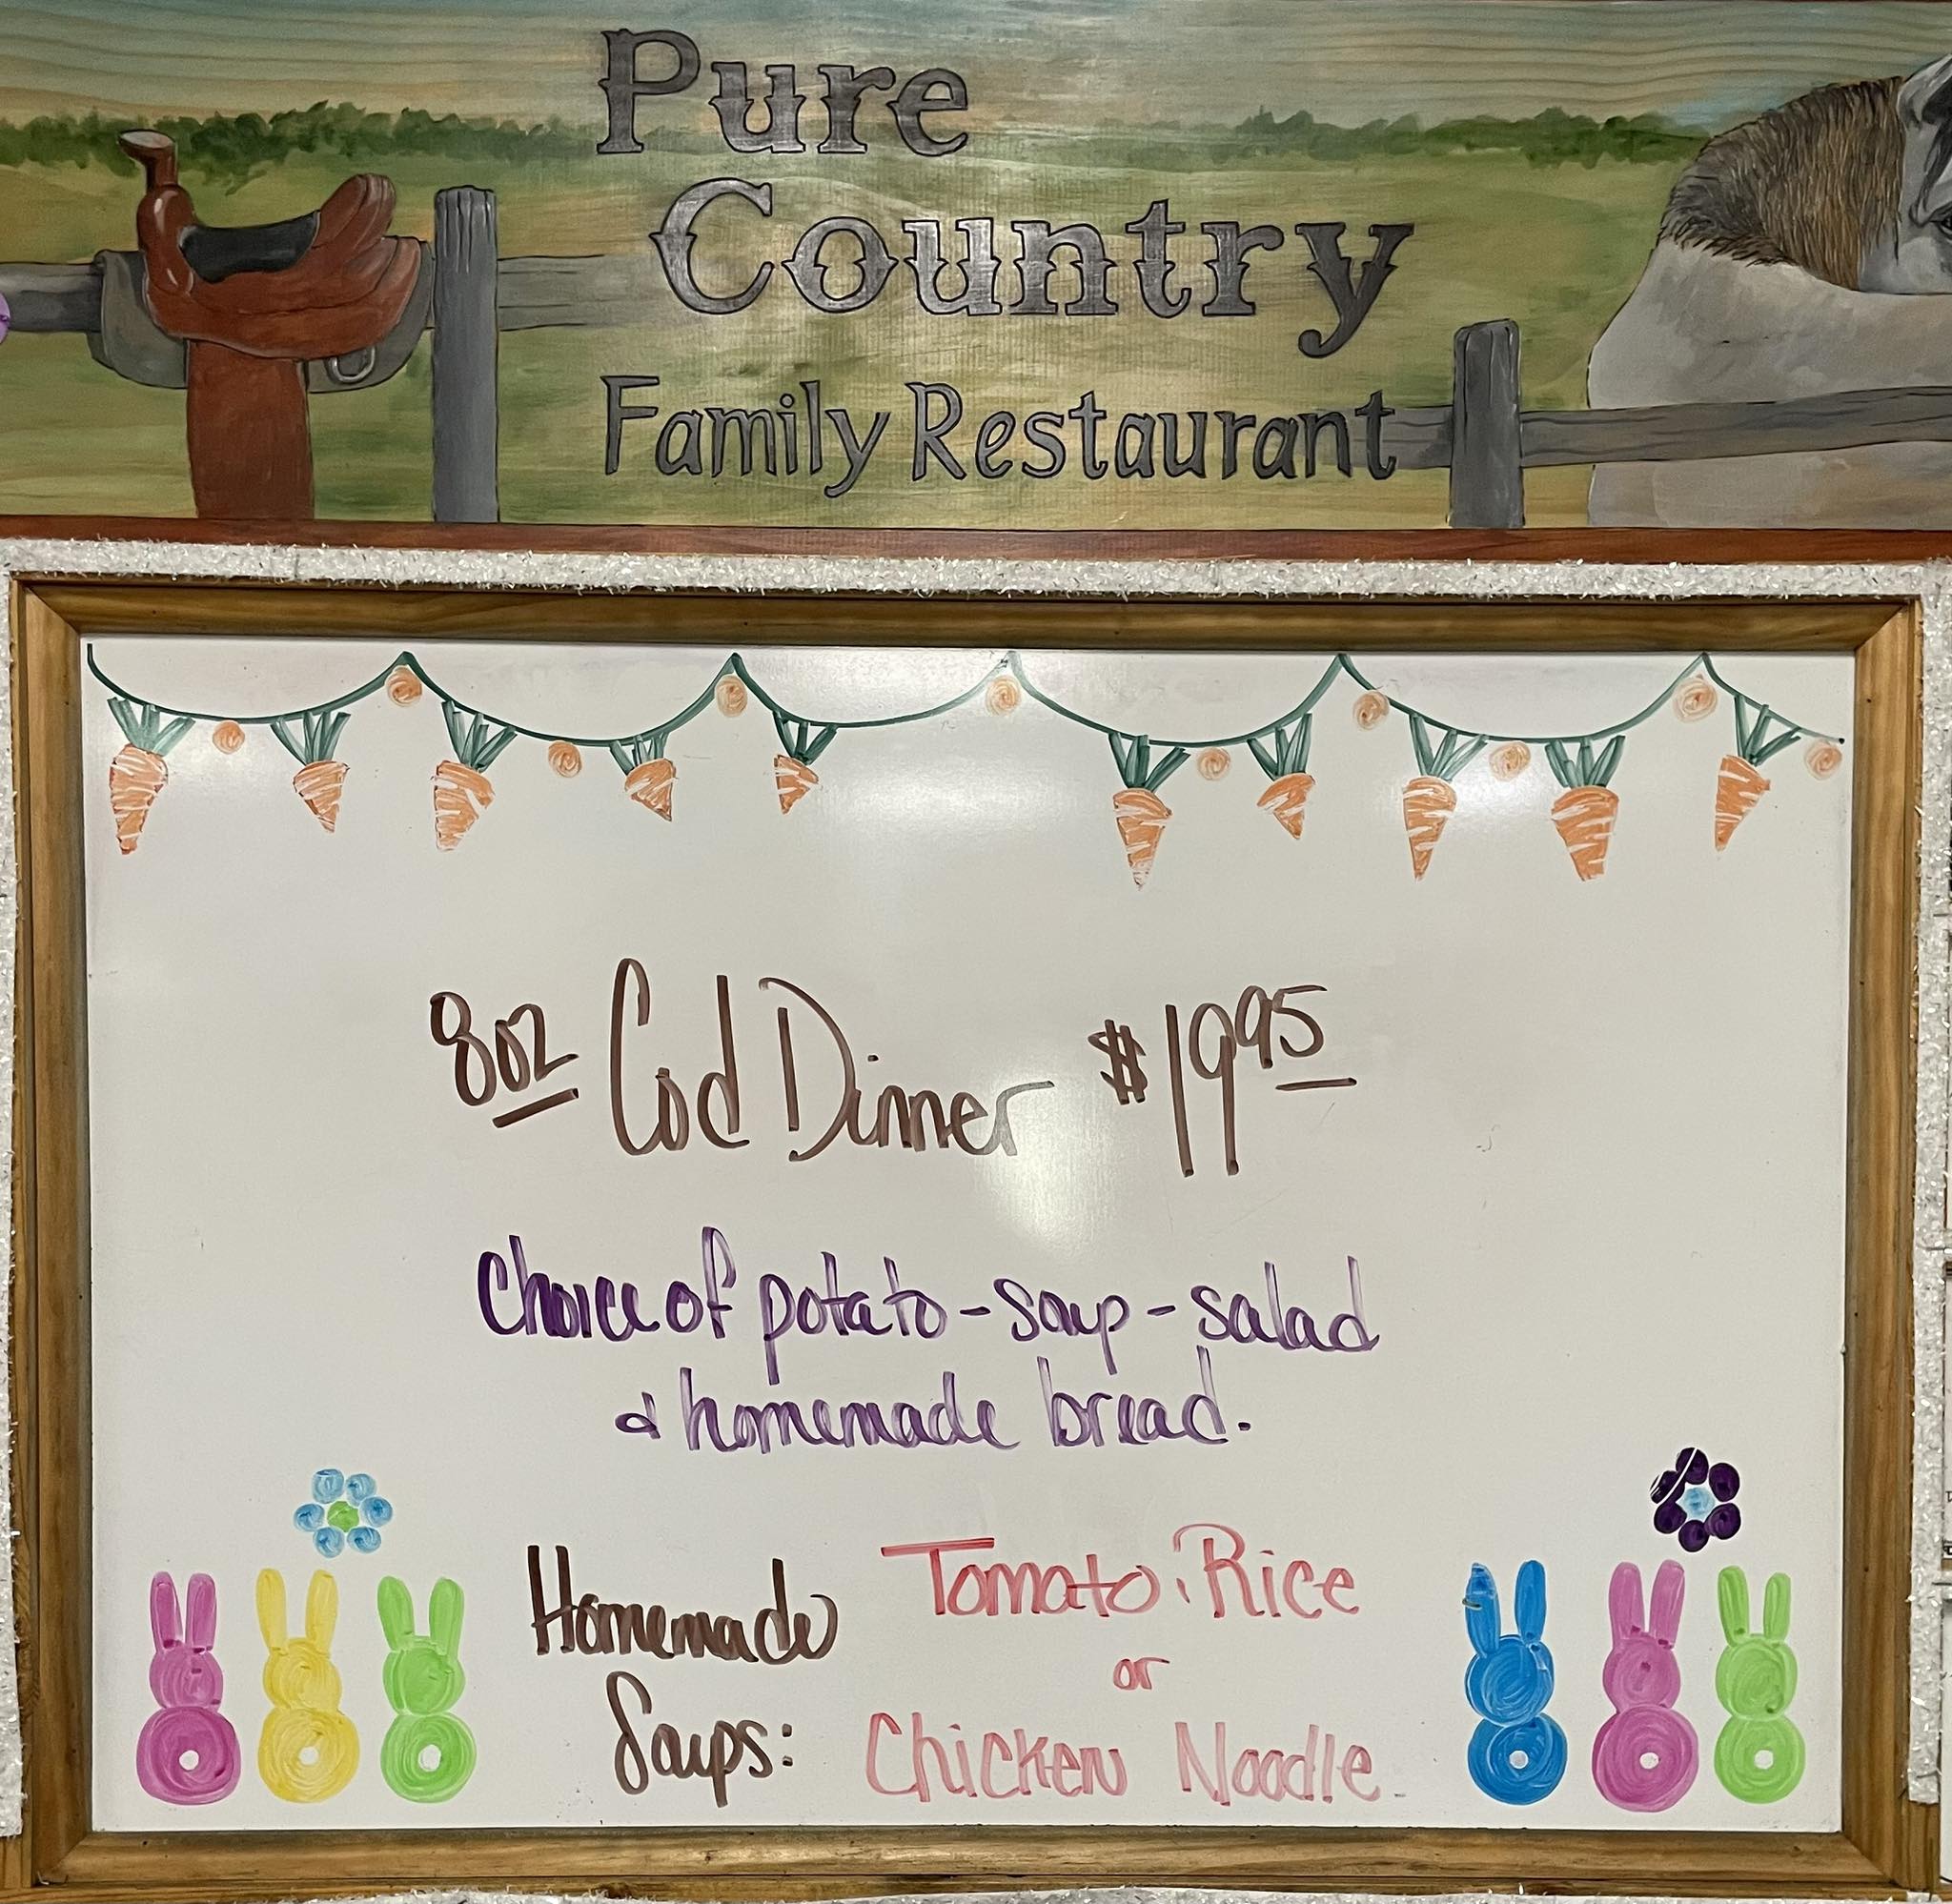 Pure
Country
Family Restaurant
8oz Cod Dinner $19.95
choice of potato - soup - salad
& homemade bread.
Homemade
Soups:
Tomato Rice
or
Chicken Noodle